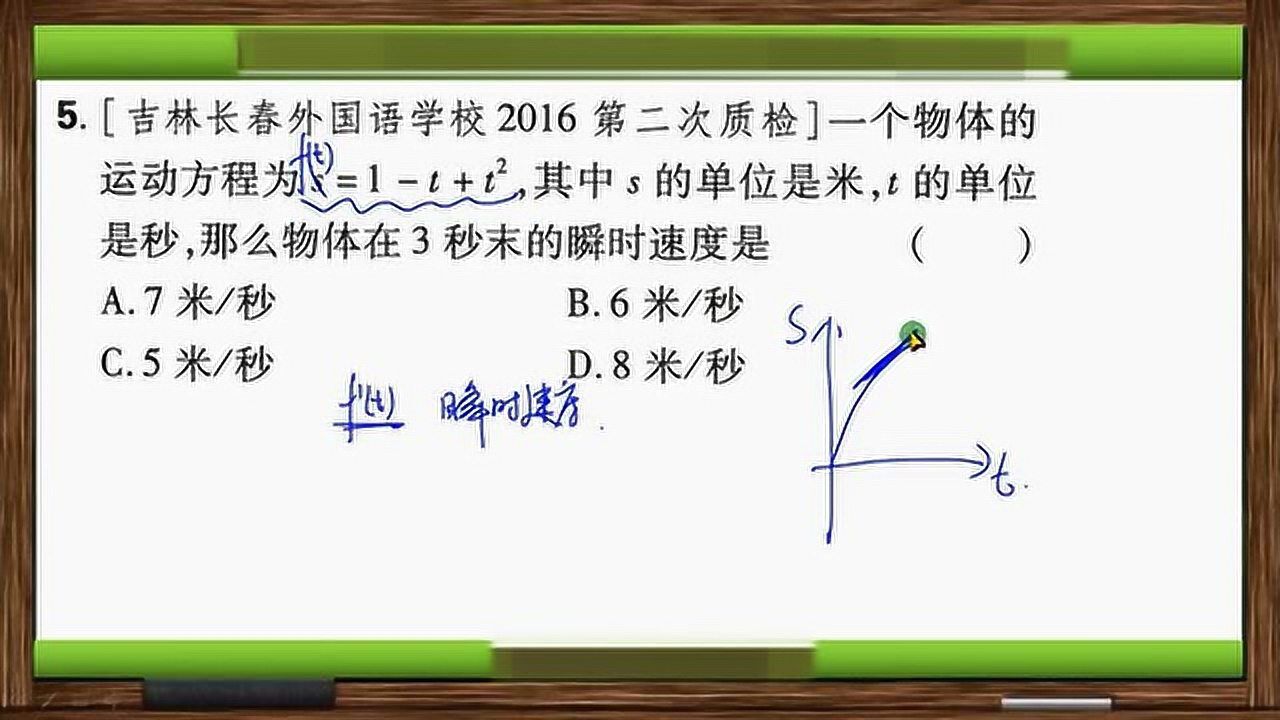 5. [吉林长春外国语学校 2016 第二次质检] 一个物体的
f(t)
运动方程为 s = 1 - t + t², 其中 s 的单位是米, t 的单位
是秒, 那么物体在 3 秒末的瞬时速度是 (    )
A. 7 米/秒 B. 6 米/秒
C. 5 米/秒 D. 8 米/秒
f'(t) 瞬时速度.
S
t.